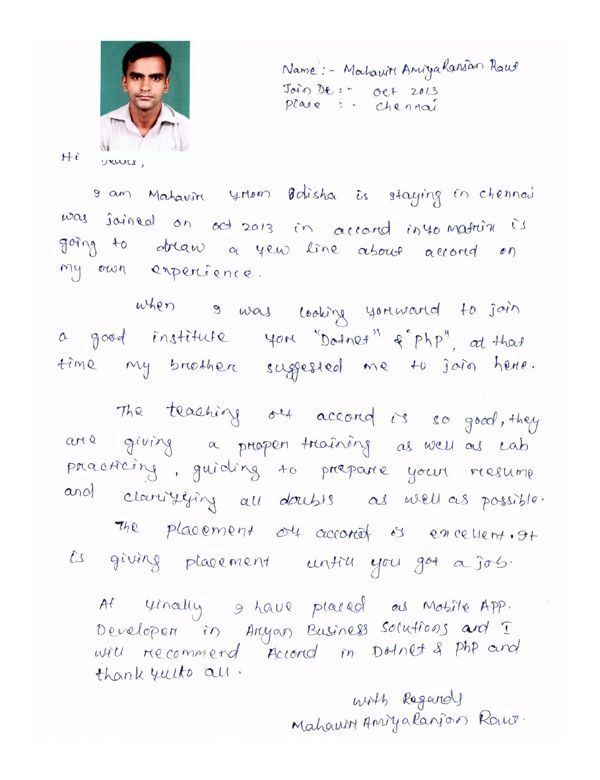 Name :- Mahavir AmiyaRanjan Raut
Join Dt :- Oct 2013
Place :- Chennai
Hi
I am Mahavir from Odisha is staying in chennai
was joined on oct 2013 in accord info Matrix is
going to draw a few line about accord on
my own experience.
when I was looking forward to join
a good institute for "Dotnet" & "Php", at that
time my brother suggested me to join here.
The teaching of accord is so good, they
are giving a proper training as well as Lab
practicing, guiding to prepare your resume
and clarifying all doubts as well as possible.
The placement of accord is excellent. It
is giving placement untill you got a job.
At finally I have placed as Mobile APP.
Developer in Aryan Business Solutions and I
will recommend Accord in Dotnet & Php and
thankfull to all.
with Regards
Mahavir AmiyaRanjan Raut.